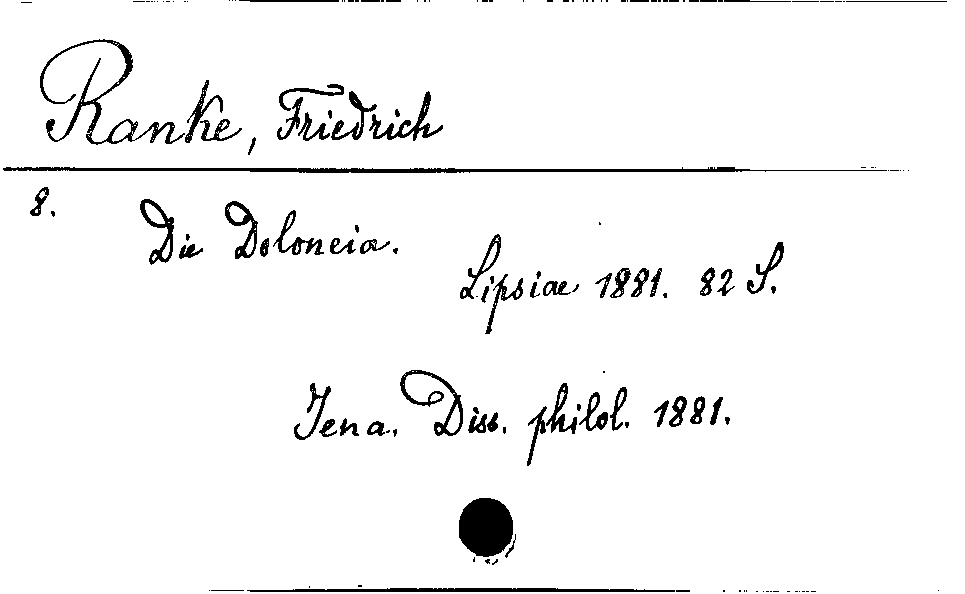 Ranke, Friedrich
8.
Die Doloneia.
Lipsiae 1881. 82 S.
Jena. Diss. philol. 1881.